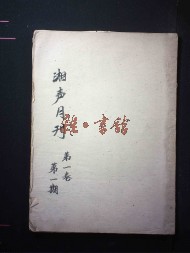 湘声月刊
第一卷
第一期